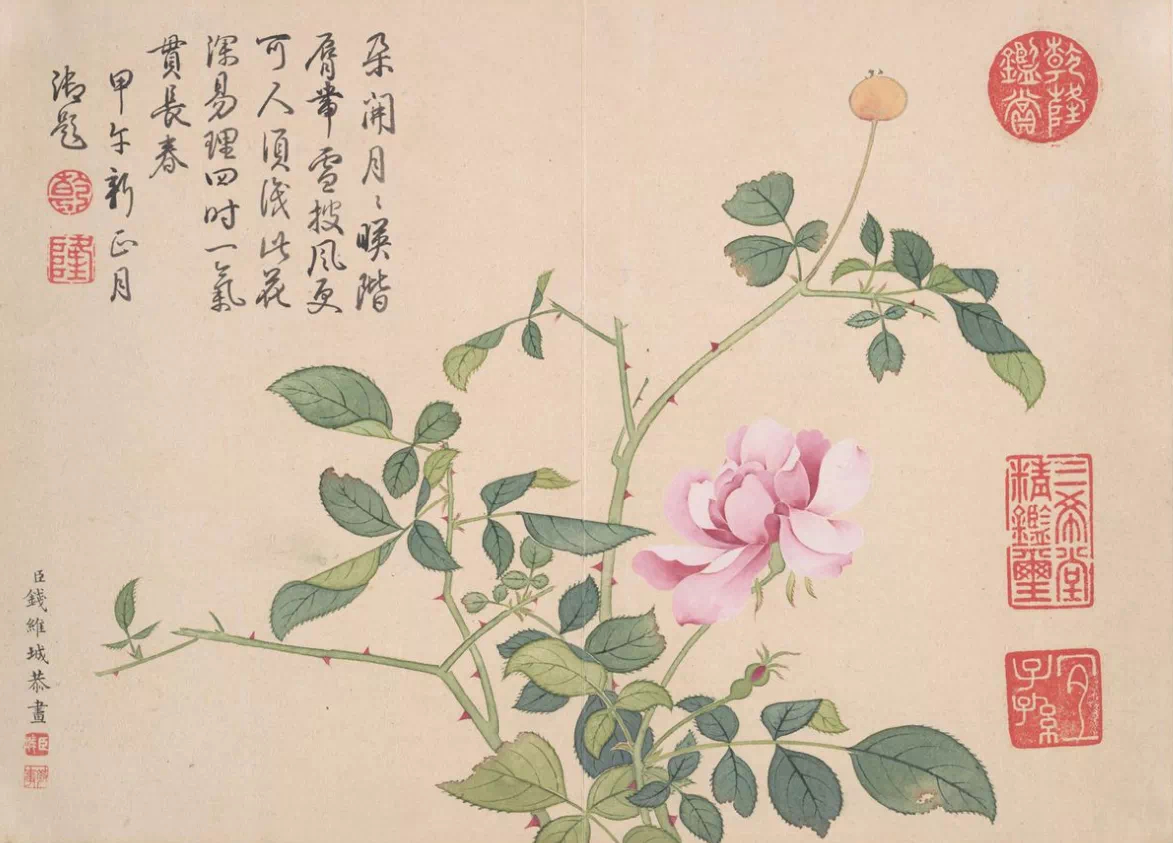 乾隆鑑賞
三希堂精鑑璽
宜子孫
朶開月〻暎階
脣帶雪披風更
可人須識此花
深易理四時一氣
貫長春
甲午新正月
御題
乾
隆
臣錢維城恭畫